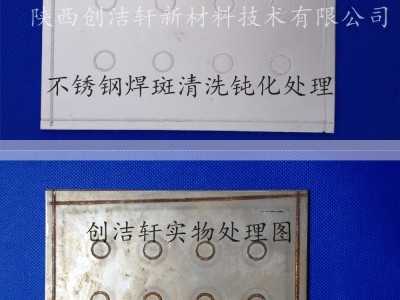 陕西创洁轩新材料技术有限公司
不锈钢焊斑清洗钝化处理
创洁轩实物处理图